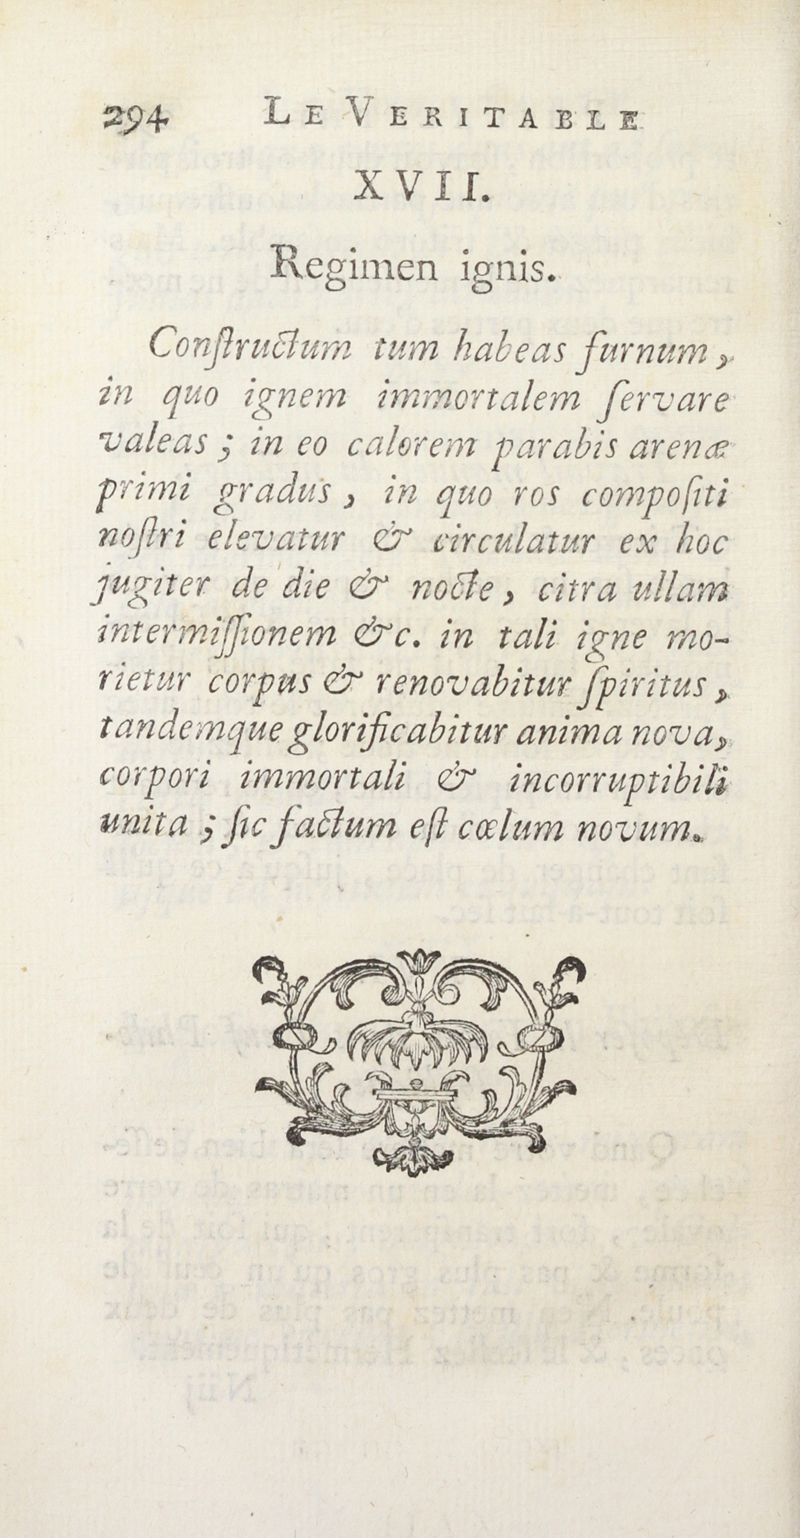 294 LE VERITABLE
XVII.
Regimen ignis.
Conſtructum tum habeas furnum,
in quo ignem immortalem ſervare
valeas ; in eo calorem parabis arenæ
primi gradus, in quo ros compoſiti
noſtri elevatur & circulatur ex hoc
jugiter de die & nocte, citra ullam
intermiſſionem &c. in tali igne mo-
rietur corpus & renovabitur ſpiritus,
tandemque glorificabitur anima nova,
corpori immortali & incorruptibili
unita ; ſic factum eſt cœlum novum.